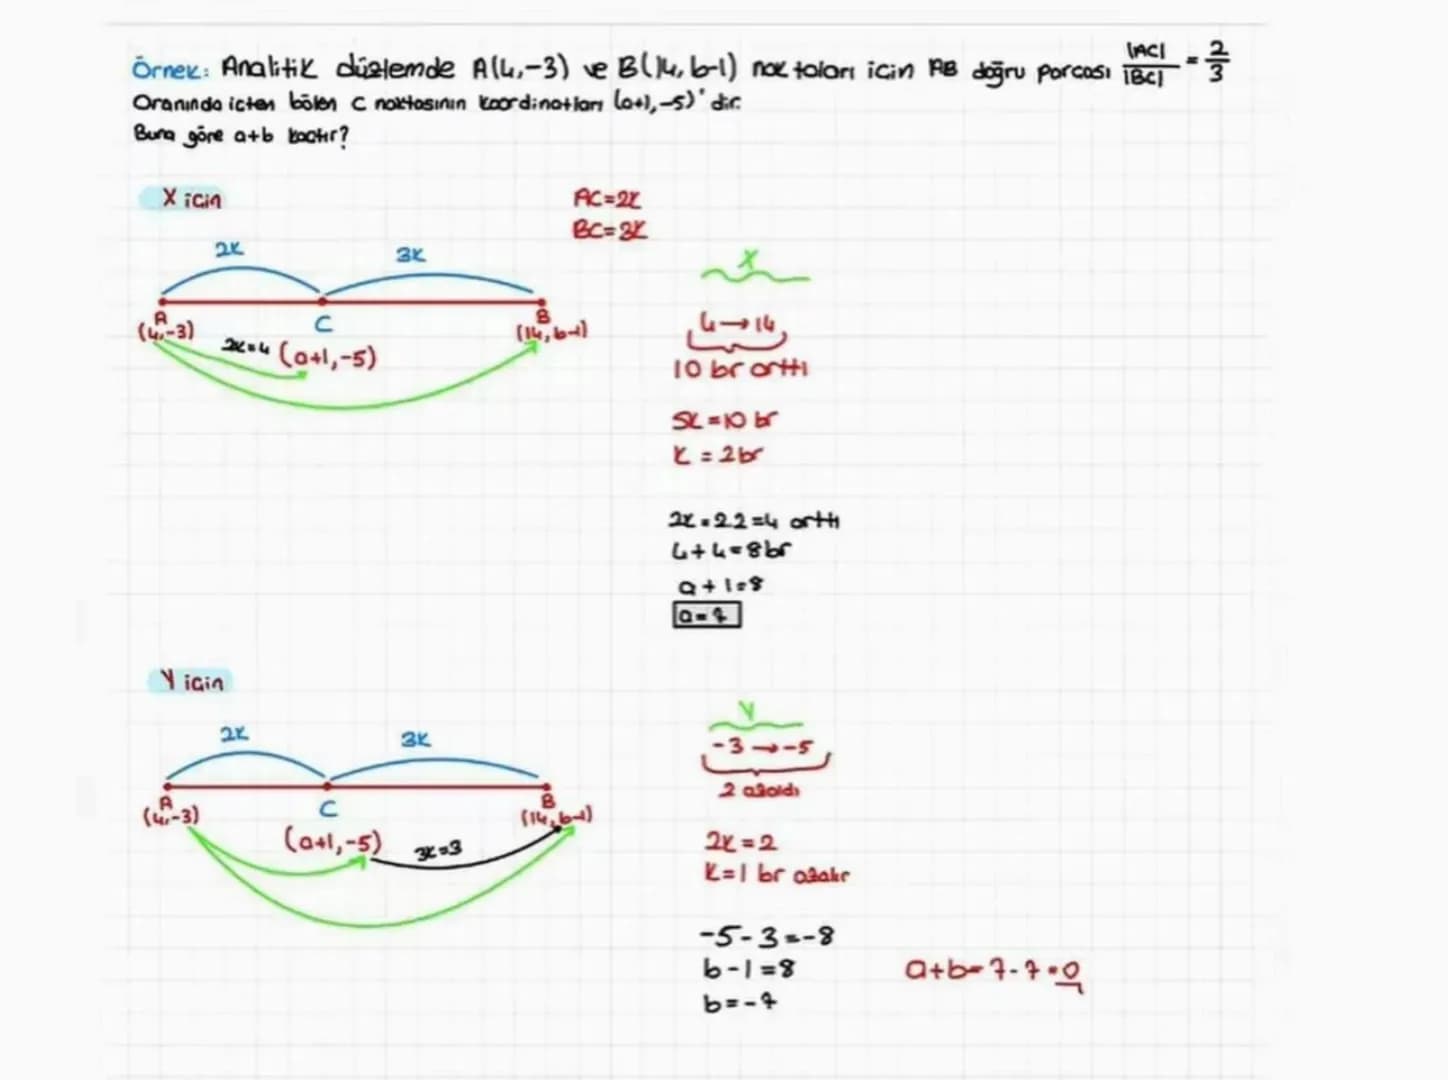 Örnek: Analitik düzlemde A(4,-3) ve B(14, b-1) noktaları için AB doğru parçası |AC|/|BC| = 2/3
Oranında içten bölen C noktasının koordinatları (a+1,-5)' dir.
Buna göre a+b kaçtır?
X için
AC=2K
BC=3K
2K
3K
X
A
C
B
(4,-3)
(14, b-1)
2K=4
(a+1,-5)
4→14
10 br arttı
5K=10 br
K = 2br
2K=2.2=4 arttı
4+4=8br
a+1=8
a=7
Y için
2K
3K
Y
-3→-5
2 azaldı
A
C
B
(4,-3)
(14, b-1)
(a+1,-5)
3K=3
2K=2
K=1 br azalır
-5-3=-8
b-1=8
b=-7
a+b=7-7=0